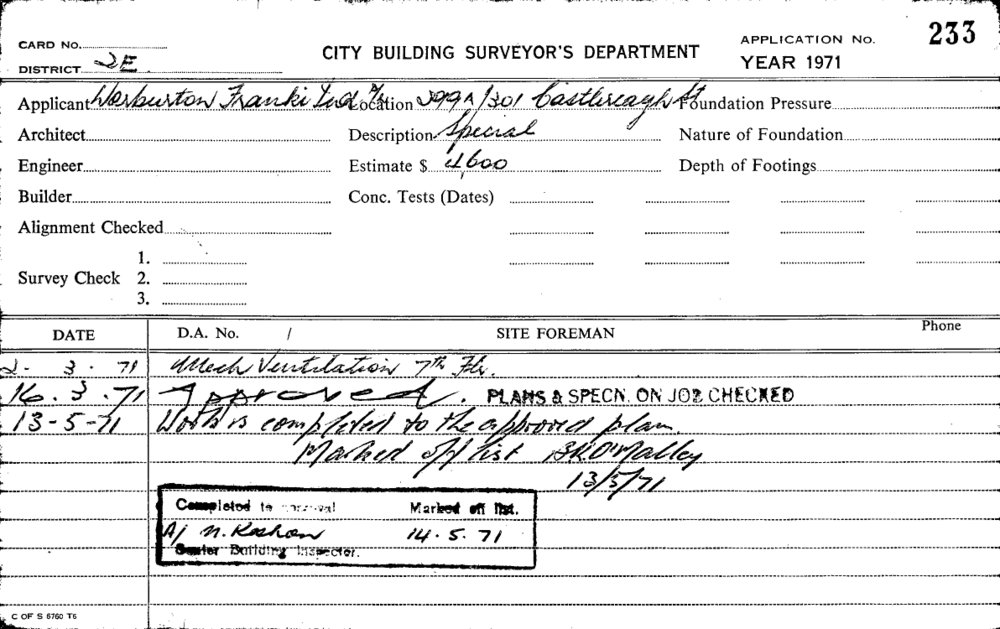 CARD No. APPLICATION No. 233
DISTRICT 2E CITY BUILDING SURVEYOR'S DEPARTMENT YEAR 1971
Applicant Warburton Franki Location 299A/301 Castlereagh St Foundation Pressure
Architect Description Special Nature of Foundation
Engineer Estimate $ 4,600 Depth of Footings
Builder Conc. Tests (Dates)
Alignment Checked
1.
Survey Check 2.
3.
DATE D.A. No. / SITE FOREMAN Phone
2. 3. 71 Mech Ventilation 7th Flr.
16. 3. 71 Approved. PLANS & SPECN. ON JOB CHECKED
13-5-71 Work is completed to the approved plan.
Marked off list B.R. O'Malley
13/5/71
Completed to approval Marked off list.
14. 5. 71
Senior Building Inspector.
C OF S 6760 T6